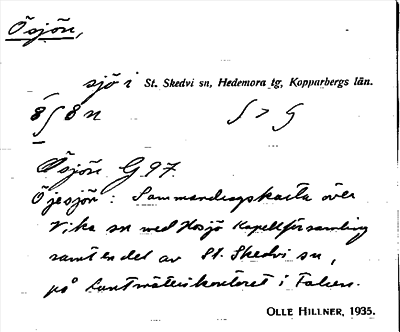 Ösjön,
sjö i St. Skedvi sn, Hedemora tg, Kopparbergs län.
Ösjön G 97.
Öjesjön: Sammandragskarta över
Vika sn med Hosjö Kapellförsamling
samt en del av St. Skedvi sn,
på Lantmäterikontoret i Falun.
OLLE HILLNER, 1935.